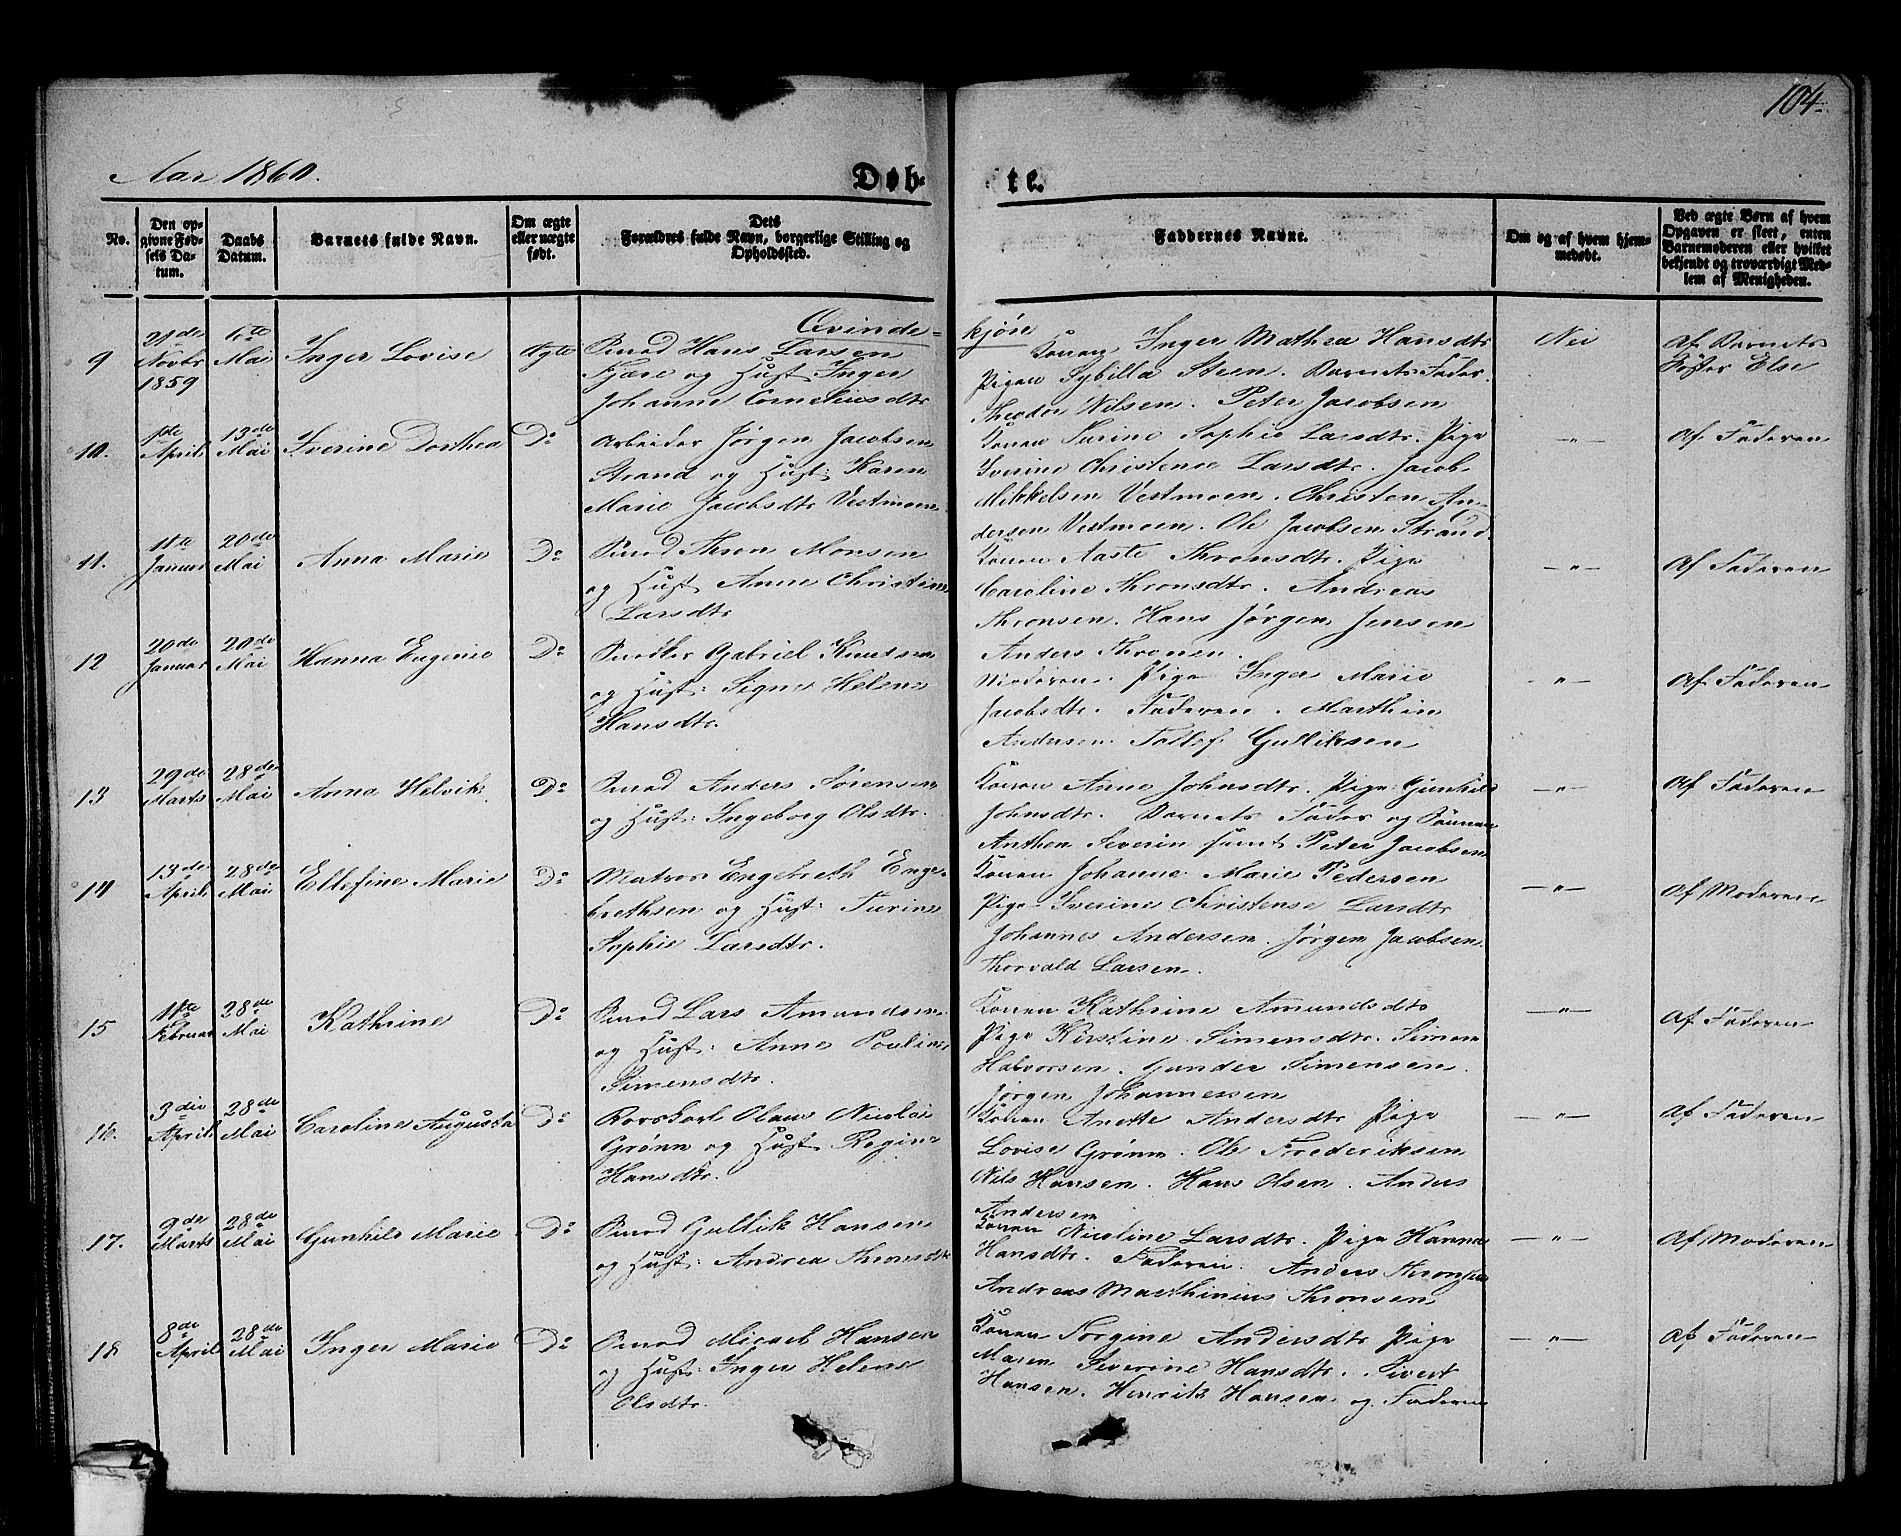 104.
Aar 1860.
Døb-
te.
No.
Den op-
givne Fød-
sels Da-
tum.
Daabs
Datum.
Barnets fulde Navn.
Om ægte
eller uægte
født.
Dets
Forældres fulde Navn, borgerlige Stilling og
Opholdssted.
Faddernes Navne.
Om og af hvem hjem-
medøbt.
Ved ægte Børn af hvem
Opgaven er skeet, enten
Barnemoderen eller hvilket
bekjendt og troværdigt Med-
lem af Menigheden.
Qvinde-
kjøn
9
21de
Novbr
1859
6te
Mai
Inger Lovise
Ægte
Smed Hans Larsen
Fjære og Hust: Inger
Johanne Corneliusdtr
Konen Inger Mathea Hansdtr
Pigen Sybilla Steen. Barnets Fader.
Theodor Nilsen. Peter Jacobsen
Nei
Af Barnets
Søster Else
10.
1ste
April
13de
Mai
Iverine Dorthea
Do
Arbeider Jørgen Jacobsen
Strand og Hust: Karen
Marie Jacobsdtr Vestmoen
Konen Turine Sophie Larsdtr. Pige
Iverine Christense Larsdtr. Jacob
Mikkelsen Vestmoen. Christen An-
dersen Vestmoen. Ole Jacobsen Strand.
—"—
Af Faderen
11.
11te
Januar
20de
Mai
Anna Marie
Do
Smed Thron Monsen
og Hust: Anne Christine
Larsdtr
Konen Aaste Thronsdtr. Pige
Caroline Thronsdtr. Andreas
Thronsen. Hans Jørgen Jensen
Anders Thronsen.
—"—
Af Faderen
12
20de
Januar
20de
Mai
Hanna Eugenie
Do
Snedker Gabriel Knudsen
og Hust: Signe Helene
Hansdtr.
Moderen. Pige Inger Marie
Jacobsdtr. Faderen. Marthin
Andersen. Tollef Gulliksen
—"—
Af Faderen
13
29de
Marts
28de
Mai
Anna Helvik
Do
Smed Anders Sørensen
og Hust: Ingeborg Olsdtr.
Konen Anne Johnsdtr. Pige Gunhild
Johnsdtr. Barnets Fader og Sønnen
Anthon Severin samt Peter Jacobsen
—"—
Af Faderen
14
13de
April
28de
Mai
Ellefine Marie
Do
Matros Engebreth Enge-
brethsen og Hust: Turine
Sophie Larsdtr.
Konen Johanne Marie Pedersen
Pige Iverine Christense Larsdtr
Johannes Andersen. Jørgen Jacobsen.
Thorvald Larsen.
—"—
Af Moderen
15
11te
Februar
28de
Mai
Kathrine
Do
Smed Lars Amundsen
og Hust: Anne Pouline
Simensdtr.
Konen Kathrine Amundsdtr
Pige Kirstine Simensdtr. Simen
Halvorsen. Gunder Simensen.
Jørgen Johannessen
—"—
Af Faderen
16.
3die
April
28de
Mai
Caroline Augusta
Do
Rorskarl Olaus Nicolai
Grønn og Hust: Regine
Hansdtr.
Konen Anette Andersdtr Pige
Lovise Grønn. Ole Frederiksen
Nils Hansen. Hans Olsen. Anders
Andersen
—"—
Af Faderen
17.
9de
Marts
28de
Mai
Gunhild Marie
Do
Smed Gullik Hansen
og Hust: Andrea Thronsdtr
Konen Nicoline Larsdtr. Pige Karen
Hansdtr. Faderen. Anders Thronsen
Andreas Marthinius Thronsen
—"—
Af Moderen
18
8de
April
28de
Mai
Inger Marie
Do
Smed Micael Hansen
og Hust: Inger Helene
Olsdtr.
Konen Torgine Andersdtr Pige
Maren Severine Hansdtr. Sivert
Hansen. Henrik Hansen og Faderen
—"—
Af Faderen